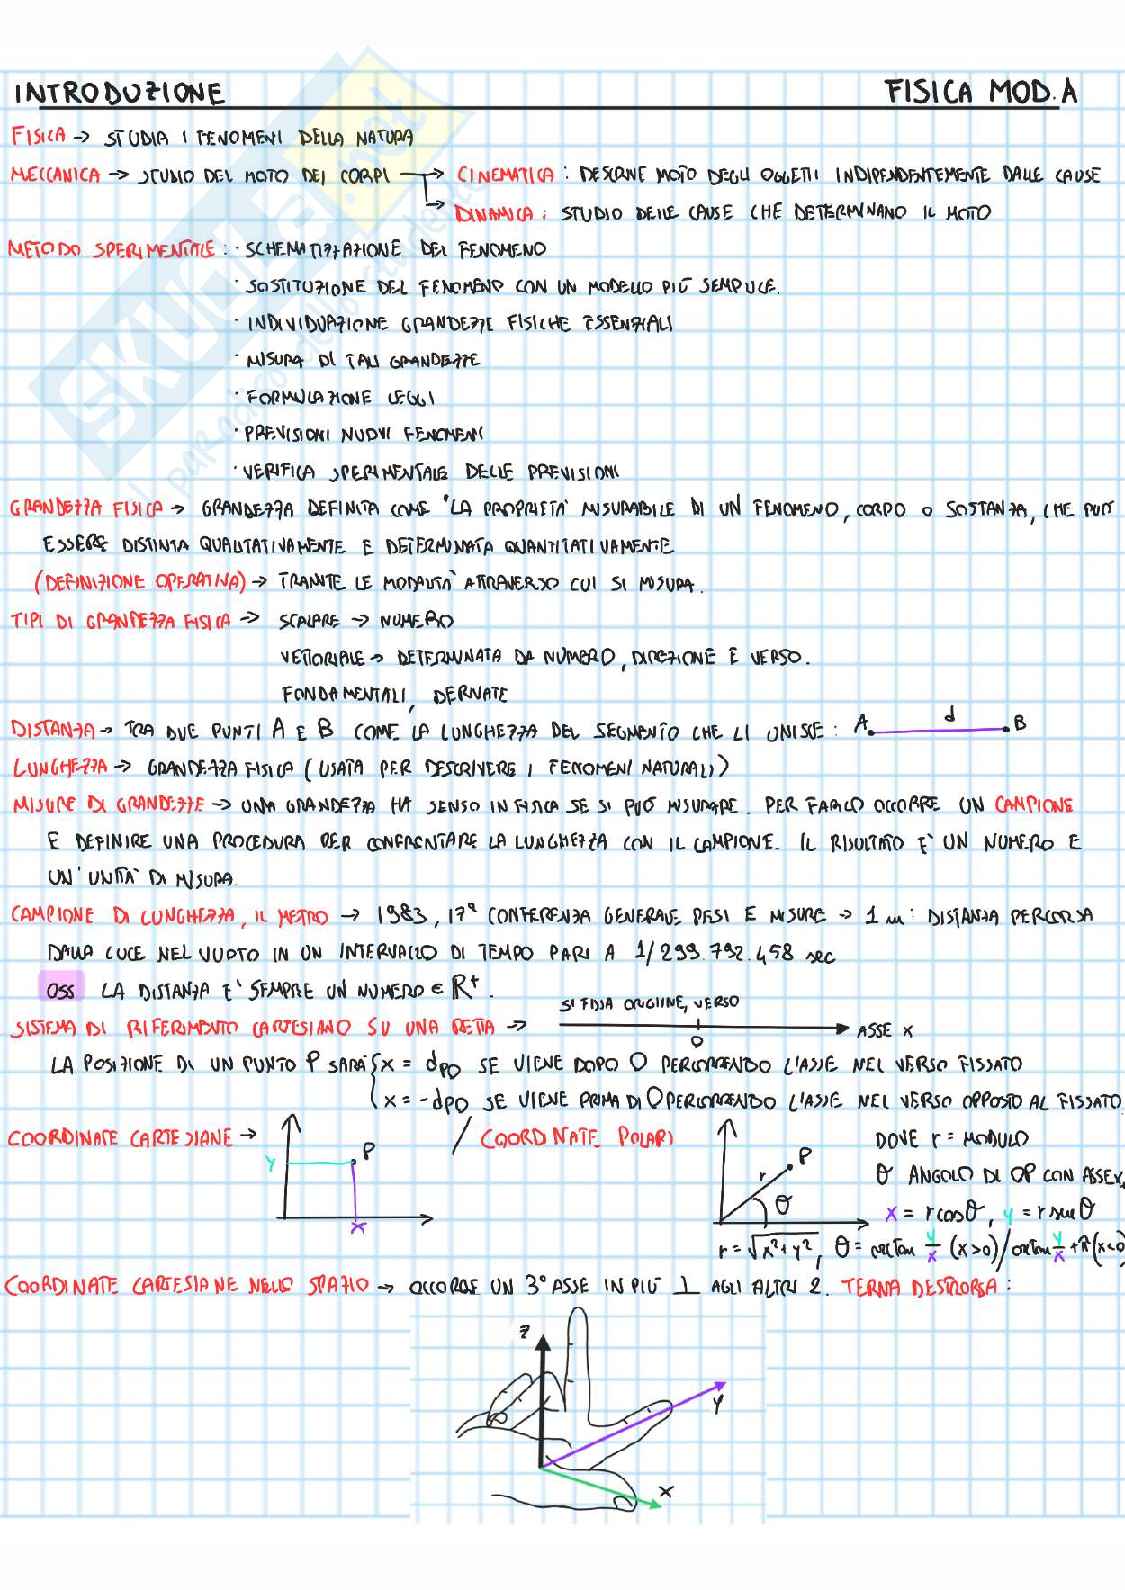 INTRODUZIONE FISICA MOD.A
FISICA → STUDIA I FENOMENI DELLA NATURA
MECCANICA → STUDIO DEL MOTO DEI CORPI → CINEMATICA : DESCRIVE MOTO DEGLI OGGETTI INDIPENDENTEMENTE DALLE CAUSE
→ DINAMICA : STUDIO DELLE CAUSE CHE DETERMINANO IL MOTO
METODO SPERIMENTALE : · SCHEMATIZZAZIONE DEL FENOMENO
· SOSTITUZIONE DEL FENOMENO CON UN MODELLO PIÙ SEMPLICE.
· INDIVIDUAZIONE GRANDEZZE FISICHE ESSENZIALI
· MISURA DI TALI GRANDEZZE
· FORMULAZIONE LEGGI
· PREVISIONI NUOVI FENOMENI
· VERIFICA SPERIMENTALE DELLE PREVISIONI
GRANDEZZA FISICA → GRANDEZZA DEFINITA COME "LA PROPRIETÀ MISURABILE DI UN FENOMENO, CORPO O SOSTANZA, CHE PUÒ
ESSERE DISTINTA QUALITATIVAMENTE E DETERMINATA QUANTITATIVAMENTE
(DEFINIZIONE OPERATIVA) → TRAMITE LE MODALITÀ ATTRAVERSO CUI SI MISURA.
TIPI DI GRANDEZZA FISICA → SCALARE → NUMERO
VETTORIALE → DETERMINATA DA NUMERO, DIREZIONE E VERSO.
FONDAMENTALI, DERIVATE
DISTANZA → TRA DUE PUNTI A E B COME LA LUNGHEZZA DEL SEGMENTO CHE LI UNISCE : A d B
LUNGHEZZA → GRANDEZZA FISICA (USATA PER DESCRIVERE I FENOMENI NATURALI)
MISURE DI GRANDEZZE → UNA GRANDEZZA HA SENSO IN FISICA SE SI PUÒ MISURARE. PER FARLO OCCORRE UN CAMPIONE
E DEFINIRE UNA PROCEDURA PER CONFRONTARE LA LUNGHEZZA CON IL CAMPIONE. IL RISULTATO E' UN NUMERO E
UN' UNITÀ DI MISURA.
CAMPIONE DI LUNGHEZZA, IL METRO → 1983, 17ª CONFERENZA GENERALE PESI E MISURE → 1 m : DISTANZA PERCORSA
DALLA LUCE NEL VUOTO IN UN INTERVALLO DI TEMPO PARI A 1/299.792.458 sec
OSS LA DISTANZA E' SEMPRE UN NUMERO ∈ R⁺.
SI FISSA ORIGIINE, VERSO
SISTEMA DI RIFERIMENTO CARTESIANO SU UNA RETTA → O ASSE x
LA POSIZIONE DI UN PUNTO P SARÀ { x = dPO SE VIENE DOPO O PERCORRENDO L'ASSE NEL VERSO FISSATO
x = -dPO SE VIENE PRIMA DI O PERCORRENDO L'ASSE NEL VERSO OPPOSTO AL FISSATO.
COORDINATE CARTESIANE → y P x / COORDINATE POLARI r P θ DOVE r = MODULO
θ ANGOLO DI OP CON ASSE x,
x = r cosθ, y = r senθ
r = √x²+y², θ = arctan y/x (x>0) / arctan y/x + π (x<0)
COORDINATE CARTESIANE NELLO SPAZIO → OCCORRE UN 3° ASSE IN PIÙ ⊥ AGLI ALTRI 2. TERNA DESTRORSA :
z
y
x
SKUOLA.net